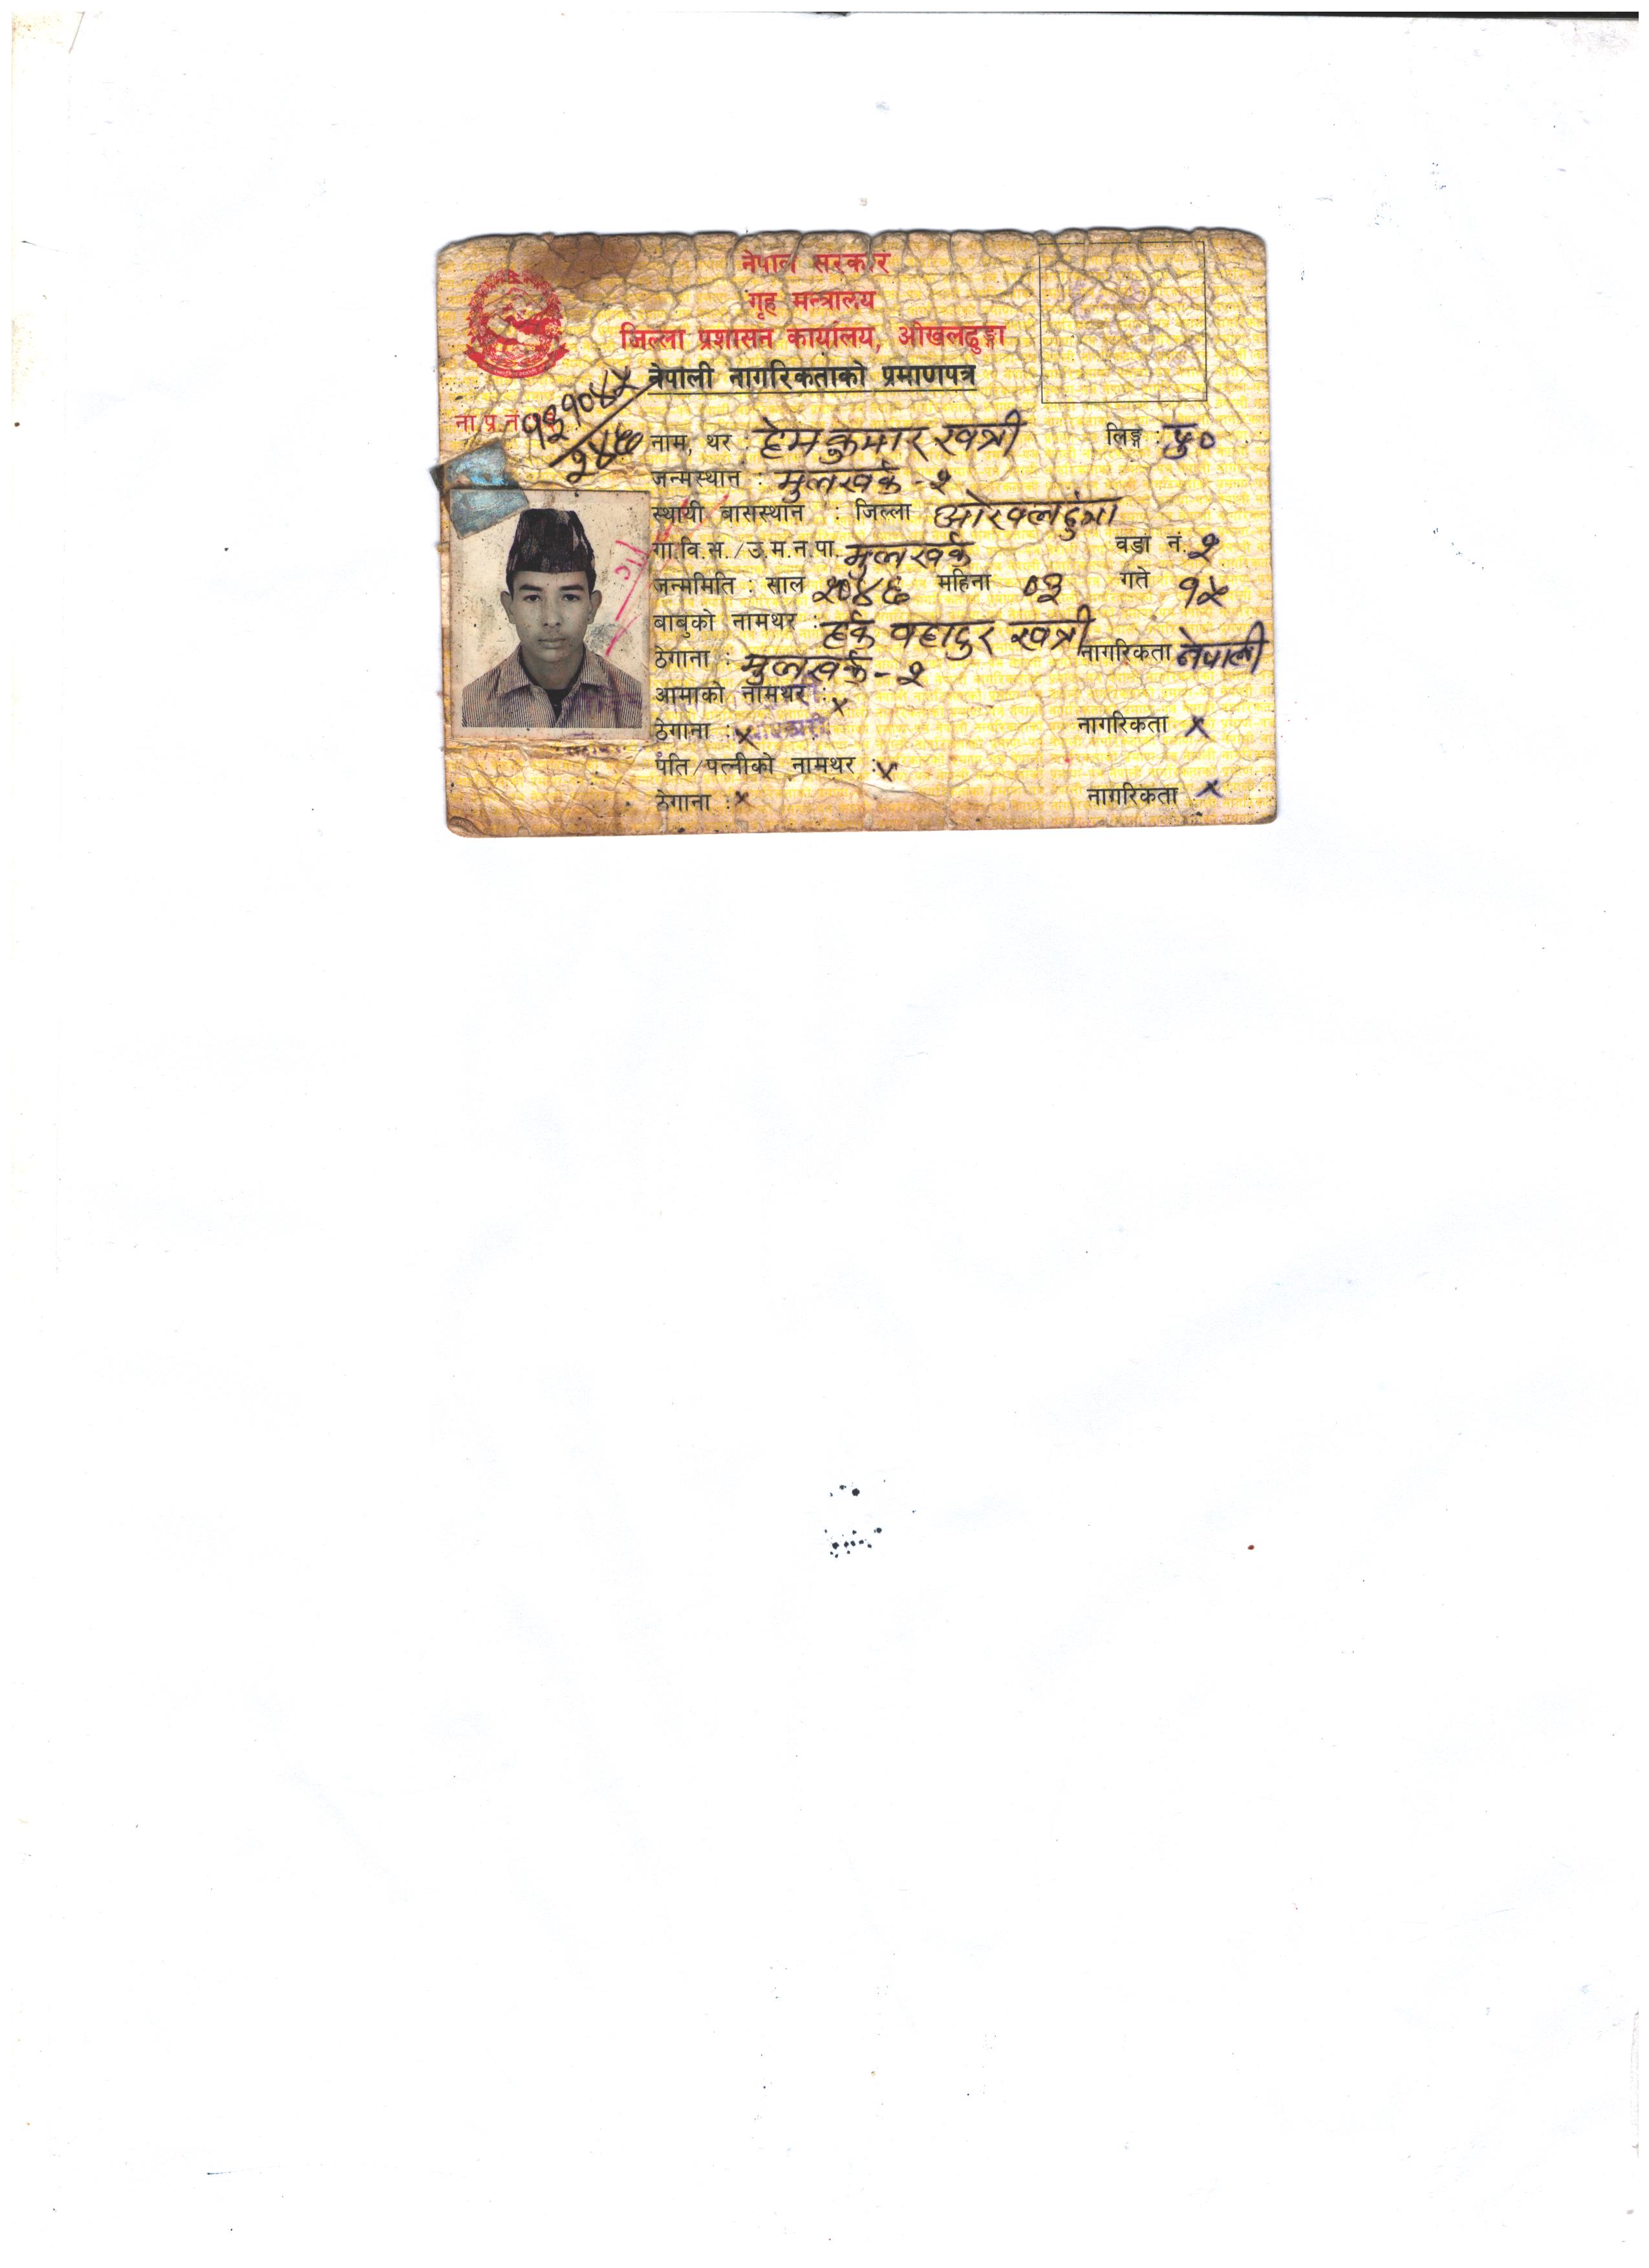 नेपाल सरकार
गृह मन्त्रालय
जिल्ला प्रशासन कार्यालय, ओखलढुङ्गा
नेपाली नागरिकताको प्रमाणपत्र
ना.प्र.नं.
नाम, थर : हेम कुमार खत्री लिङ्ग : पु०
जन्मस्थान : मुलखर्क - २
स्थायी बासस्थान : जिल्ला ओखलढुंगा
गा.वि.स./उ.म.न.पा. मुलखर्क वडा नं. २
जन्ममिति : साल २०४६ महिना ०३ गते १५
बाबुको नामथर : हर्क वहादुर खत्री
ठेगाना : मुलखर्क - २ नागरिकता नेपाली
आमाको नामथर : x
ठेगाना : x नागरिकता x
पति/पत्नीको नामथर : x
ठेगाना : x नागरिकता x